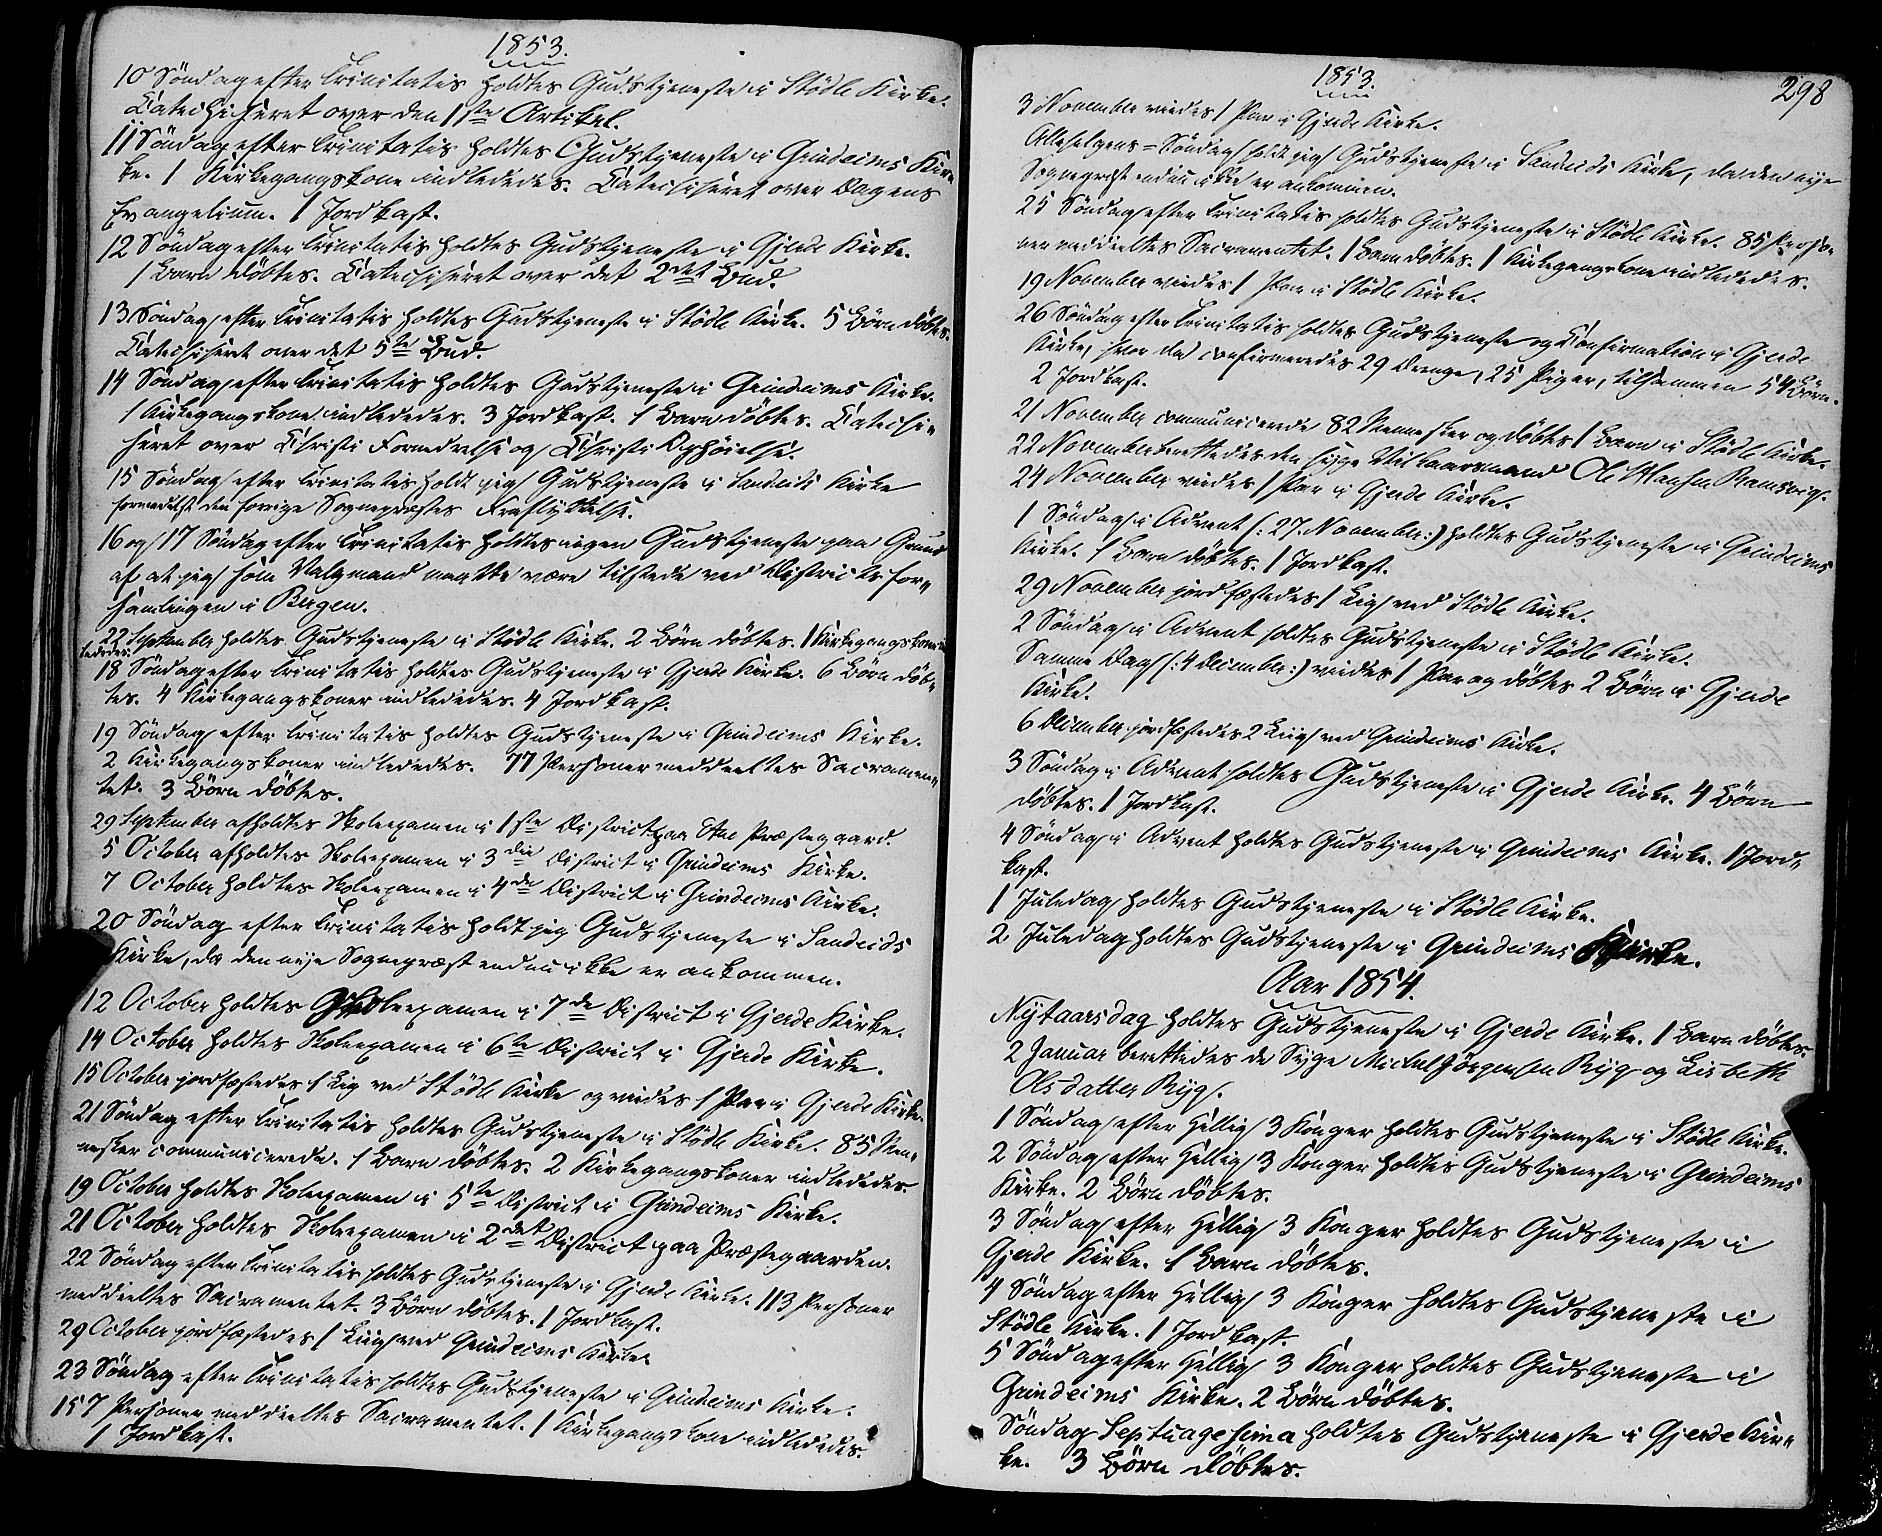 1853.
10 Söndag efter Trinitatis holdtes Gudstjeneste i Stödle Kirke.
Catechiseret over den 1ste Artikel.
11 Söndag efter Trinitatis holdtes Gudstjeneste i Grindeims Kir-
ke. 1 Kirkegangskone indlededes. Catechiseret over Dagens
Evangelium. 1 Jordkast.
12 Söndag efter Trinitatis holdtes Gudstjeneste i Gjerde Kirke.
1 Barn döbtes. Catechiseret over det 2det Bud.
13. Söndag efter Trinitatis holdtes Gudstjeneste i Stödle Kirke. 5 Börn döbtes.
Catechiseret over det 5te Bud.
14 Söndag efter Trinitatis holdtes Gudstjeneste i Grindeims Kirke.
1 Kirkegangskone indlededes. 3 Jordkast. 1 Barn döbtes. Catechi-
seret over Christi Fornedrelse og Christi Ophöielse.
15 Söndag efter Trinitatis holdt jeg Gudstjeneste i Sandeids Kirke
formedelst den forrige Sognepræstes Fraflyttelse.
16 og 17 Söndag efter Trinitatis holdtes ingen Gudstjeneste paa Grund
af at jeg som Valgmand maatte være tilstede ved Districtsfor-
samlingen i Bergen.
22 September holdtes Gudstjeneste i Stödle Kirke. 2 Börn döbtes. 1 Kirkegangskone ind-
lededes.
18 Söndag efter Trinitatis holdtes Gudstjeneste i Gjerde Kirke. 6 Börn döb-
tes. 4 Kirkegangskoner indlededes. 4 Jordkast.
19 Söndag efter Trinitatis holdtes Gudstjeneste i Grindeims Kirke.
2 Kirkegangskoner indlededes. 77 Personer meddeeltes Sacramen-
tet. 3 Börn döbtes.
29 September afholdtes Skoleexamen i 1ste District paa Etne Præstegaard.
5 October afholdtes Skoleexamen i 3die District i Grindeims Kirke.
7 October holdtes Skoleexamen i 4de District i Grindeims Kirke.
20 Söndag efter Trinitatis holdt jeg Gudstjeneste i Sandeids
Kirke, da den nye Sognepræst endnu ikke er ankommen.
12 October holdtes Skoleexamen i 7de District i Gjerde Kirke.
14 October holdtes Skoleexamen i 6te District i Gjerde Kirke.
15 October jordfæstedes 1 Lig ved Stödle Kirke og viedes 1 Par i Gjerde Kirke.
21 Söndag efter Trinitatis holdtes Gudstjeneste i Stödle Kirke. 85 Men-
nesker communicerede. 1 Barn döbtes. 2 Kirkegangskoner indlededes.
19 October holdtes Skoleexamen i 5te District i Grindeims Kirke.
21 October holdtes Skoleexamen i 2det District paa Præstegaarden.
22 Söndag efter Trinitatis holdtes Gudstjeneste i Gjerde Kirke. 113 Personer
meddeeltes Sacramentet. 3 Börn döbtes. 1 Jordkast.
29 October jordfæstedes 1 Liig ved Grindeims Kirke.
23 Söndag efter Trinitatis holdtes Gudstjeneste i Grindeims Kirke.
157 Personer meddeeltes Sacramentet. 1 Kirkegangskone indlededes.
1 Jordkast.
1853.
298
3 November viedes 1 Par i Gjerde Kirke.
Allehelgens-Söndag holdt jeg Gudstjeneste i Sandeids Kirke, da den nye
Sognepræst endnu ikke er ankommen.
25 Söndag efter Trinitatis holdtes Gudstjeneste i Stödle Kirke. 85 Perso-
ner meddeeltes Sacramentet. 1 Barn döbtes. 1 Kirkegangskone indlededes.
19 November viedes 1 Par i Stödle Kirke.
26 Söndag efter Trinitatis holdtes Gudstjeneste og Confirmation i Gjerde
Kirke, hvor da confirmeredes 29 Drenge, 25 Piger, tilsammen 54 Börn.
2 Jordkast.
21 November communicerede 82 Mennesker og döbtes 1 Barn i Stödle Kirke.
22 November berettedes den syge Vilkaarsmand Ole Hansen Ramsvig.
24 November viedes 1 Par i Gjerde Kirke.
1 Söndag i Advent (: 27. November:) holdtes Gudstjeneste i Grindeims
Kirke. 1 Barn döbtes. 1 Jordkast.
29 November jordfæstedes 1 Lig ved Stödle Kirke.
2 Söndag i Advent holdtes Gudstjeneste i Stödle Kirke.
Samme Dag (: 4 December:) viedes 1 Par og döbtes 2 Börn i Gjerde
Kirke.
6 December jordfæstedes 2 Liig ved Grindeims Kirke.
3 Söndag i Advent holdtes Gudstjeneste i Gjerde Kirke. 4 Börn
döbtes. 1 Jordkast.
4 Söndag i Advent holdtes Gudstjeneste i Grindeims Kirke. 1 Jord-
kast.
1 Juledag holdtes Gudstjeneste i Stödle Kirke.
2. Juledag holdtes Gudstjeneste i Grindeims Kirke.
Aar 1854.
Nytaarsdag holdtes Gudstjeneste i Gjerde Kirke. 1 Barn döbtes.
2 Januar berettedes de Syge Mickel Jörgensen Ryg og Lisbeth
Olsdatter Ryg.
1 Söndag efter Hellig 3 Konger holdtes Gudstjeneste i Stödle Kirke.
2 Söndag efter Hellig 3 Konger holdtes Gudstjeneste i Grindeims
Kirke. 2 Börn döbtes.
3 Söndag efter Hellig 3 Konger holdtes Gudstjeneste i
Gjerde Kirke. 1 Barn döbtes.
4 Söndag efter Hellig 3 Konger holdtes Gudstjeneste i
Stödle Kirke. 1 Jordkast.
5 Söndag efter Hellig 3 Konger holdtes Gudstjeneste i
Grindeims Kirke. 2 Börn döbtes.
Söndag Septuagesima holdtes Gudstjeneste i Gjerde Kir-
ke. 3 Börn döbtes.